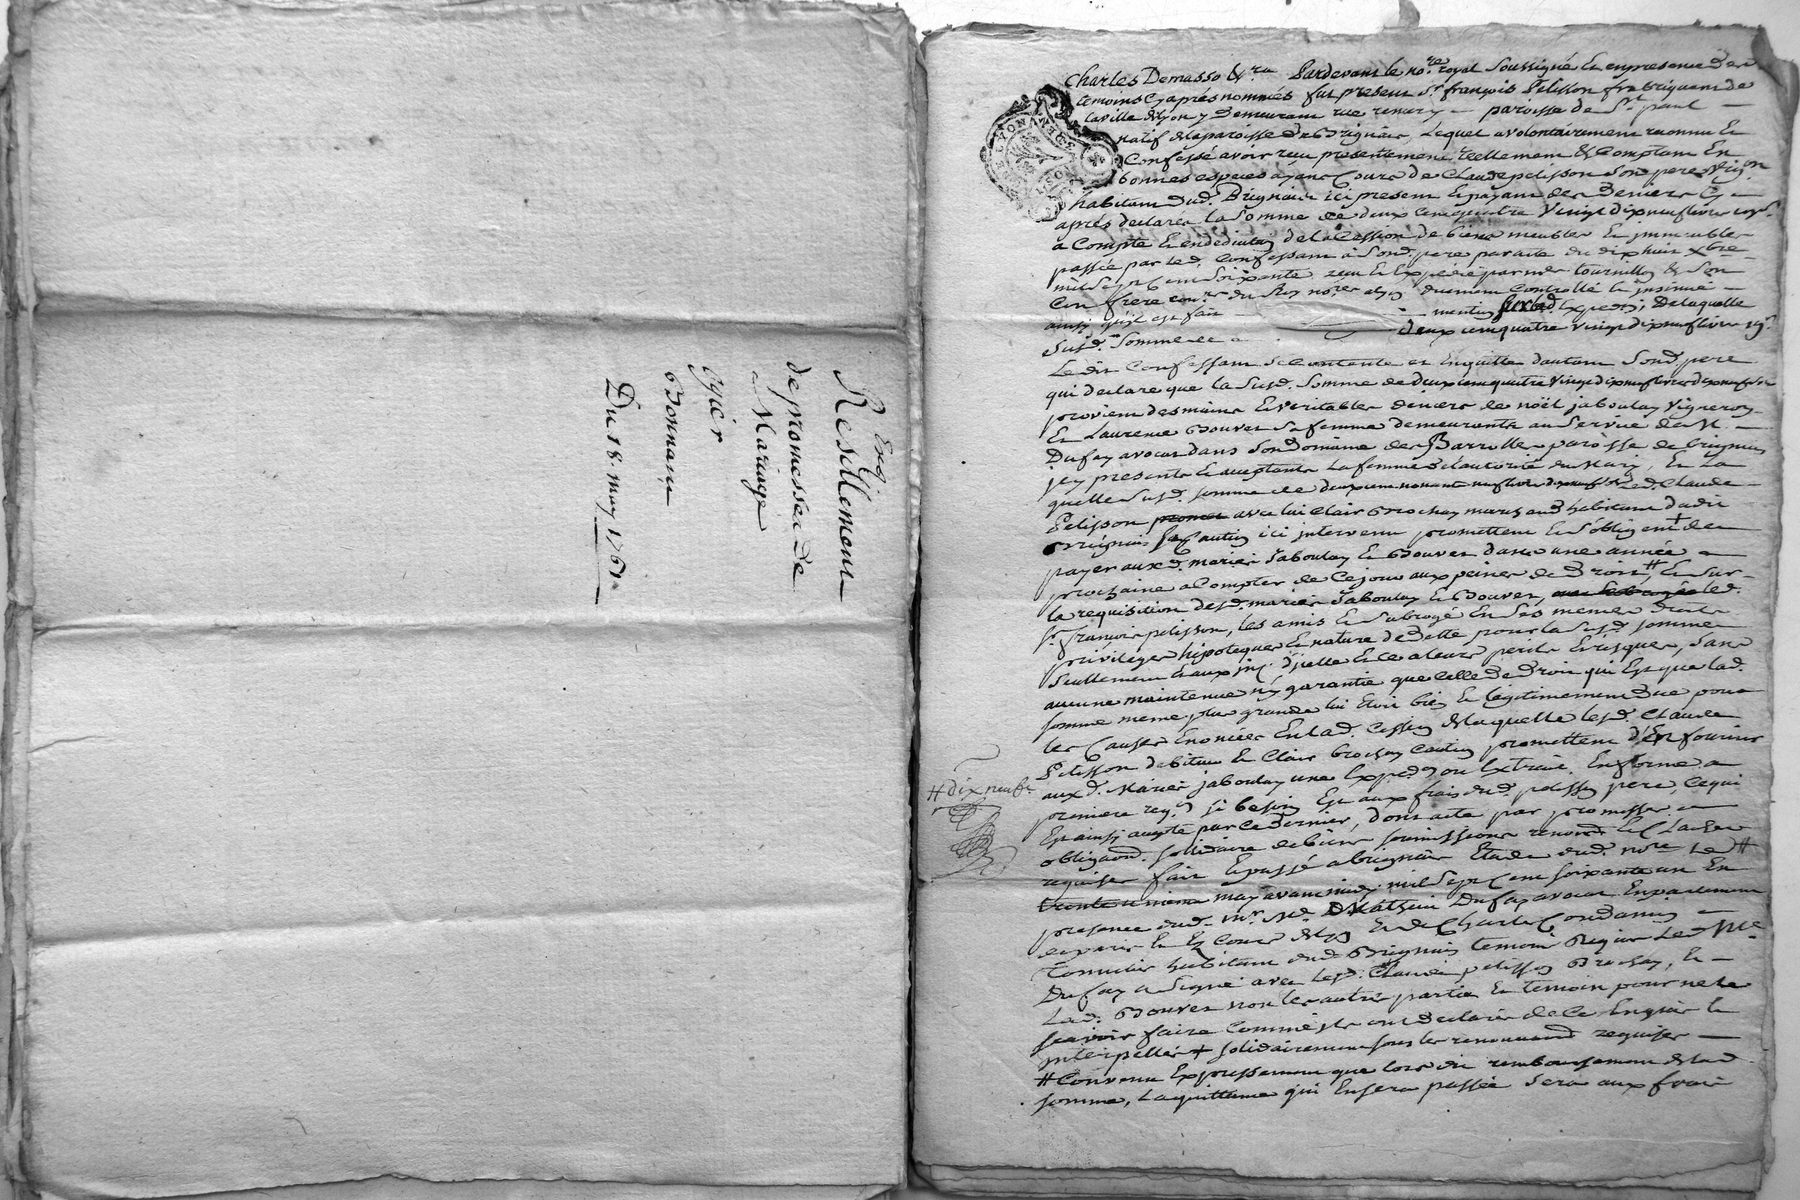 End.
Resillement
de promesses de
Mariage
ogier
Bonnam
Du 18. may 1761.
Charles Demasso &ra Pardevant le no.re royal Soussigné En presence des
temoins Cyaprés nommés fut present Sr. françois Pelisson fabriquant de
laville de lyon y Demeurant rue paroisse de St. paul
natif de laparoisse de Brignais, Lequel avolontairement reconnu Et
Confessé avoir reçu presentement reellement & Comptant En
bonnes especes ayant Cours de Claude pelisson Son pere vig.on
habitant dud. Brignais ici present Et payant des Deniers Cy
aprés declarés la Somme de deux cent quatre vingt dixneuf livres
a Compte Et en deduction de la Cession de biens meubles Et immeubles
passée par led. Confessant a Sond. pere par acte du dix huit xbre
mil Sept Cent Soixante reçu Et Expedié par me. tournillon & Son
Confrere du Roy no.res a lyon duement Controllé Et insinué
ainsi qu'il est fait mention Sur led. Expedié, De laquelle
Susd. Somme de deux cent quatre vingt dixneuf livres
Le dit Confessant Se Contente et En quitte dautant Sond. pere
qui declare que la Susd. Somme de deux cent quatre vingt dixneuf livres
provient des mains Et veritables deniers de noël jaboulay vigneron
Et Laurence Bouver Sa femme demeurants au Service de Mr.
Dufay avocat dans Son Domaine des Barrolles paroisse de brignais
icy presents Et acceptants La femme de l'autorité du Mari, Et La
quelle Susd. Somme de deux cent nonante neuf livres led. Claude
Pelisson avec lui Clair Brochay march. habitant dudit
Brignais Sa Caution ici intervenu promettent Et S'obligent + de
payer auxd. mariés Jaboulay Et Bouver dans une année
prochaine a Compter de Ce jour aux peines de Droit, # Et Sur
la requisition desd. mariés Jaboulay Et Bouver, led.
Sr. françois pelisson, les a mis Et Subrogé En Ses memes droits
privileges hipoteques Et nature de dette pour la Susd. Somme
Seullement
aucune maintenue ny garantie que Celle de Droit qui Est que lad.
Somme meme plus grande lui Etoit bien Et legitimement due pour
les Causes Enoncées En lad. Cession de laquelle lesd. Claude
Pelisson debiteur Et Clair brochay Caution promettent d'En fournir
auxd. Mariés jaboulay une Exped.on ou Extrait En forme a
premiere req.on Si besoin Est aux frais dud. pelisson pere, Ce qui
Est ainsi accepté par Ce Dernier, dont acte par promesses
oblig.aon Solidaire de biens Soumissions renon.d Et Clauses
requises fait Et passé a brignais Etude dud. no.re Le #
may avant midy mil Sept Cent Soixante un En
presence dud. Mr. Me. Mathieu Dufay avocat En parlement
Et En Cours de lyon Et de Charles Condamin
Tonnelier habitant dud. Brignais temoins requis Led. Me.
Dufay a Signé avec lesd. Claude pelisson Brochay, Et
Lad. Bouver non les autres parties Et temoin pour ne le
Scavoir faire Comme ils ont declaré de Ce Enquis Et
interpellés + Solidairement Sous les renon.aons requises
# Convenu Expressement que lors du remboursement de lad.
Somme, La quittance qui En Sera passée Sera aux frais
# dix neuf